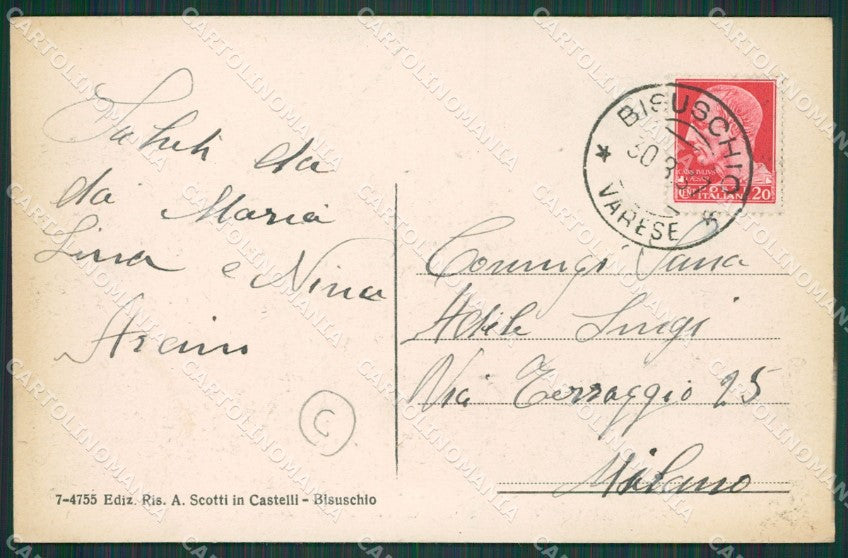 Saluti da
da Maria
Lina e Nina
BISUSCHIO
30.8.
VARESE
20
Coniugi
Adele Luigi
Via Terraggio 25
Milano
C
7-4755 Ediz. Ris. A. Scotti in Castelli - Bisuschio
CARTOLINOMANIA